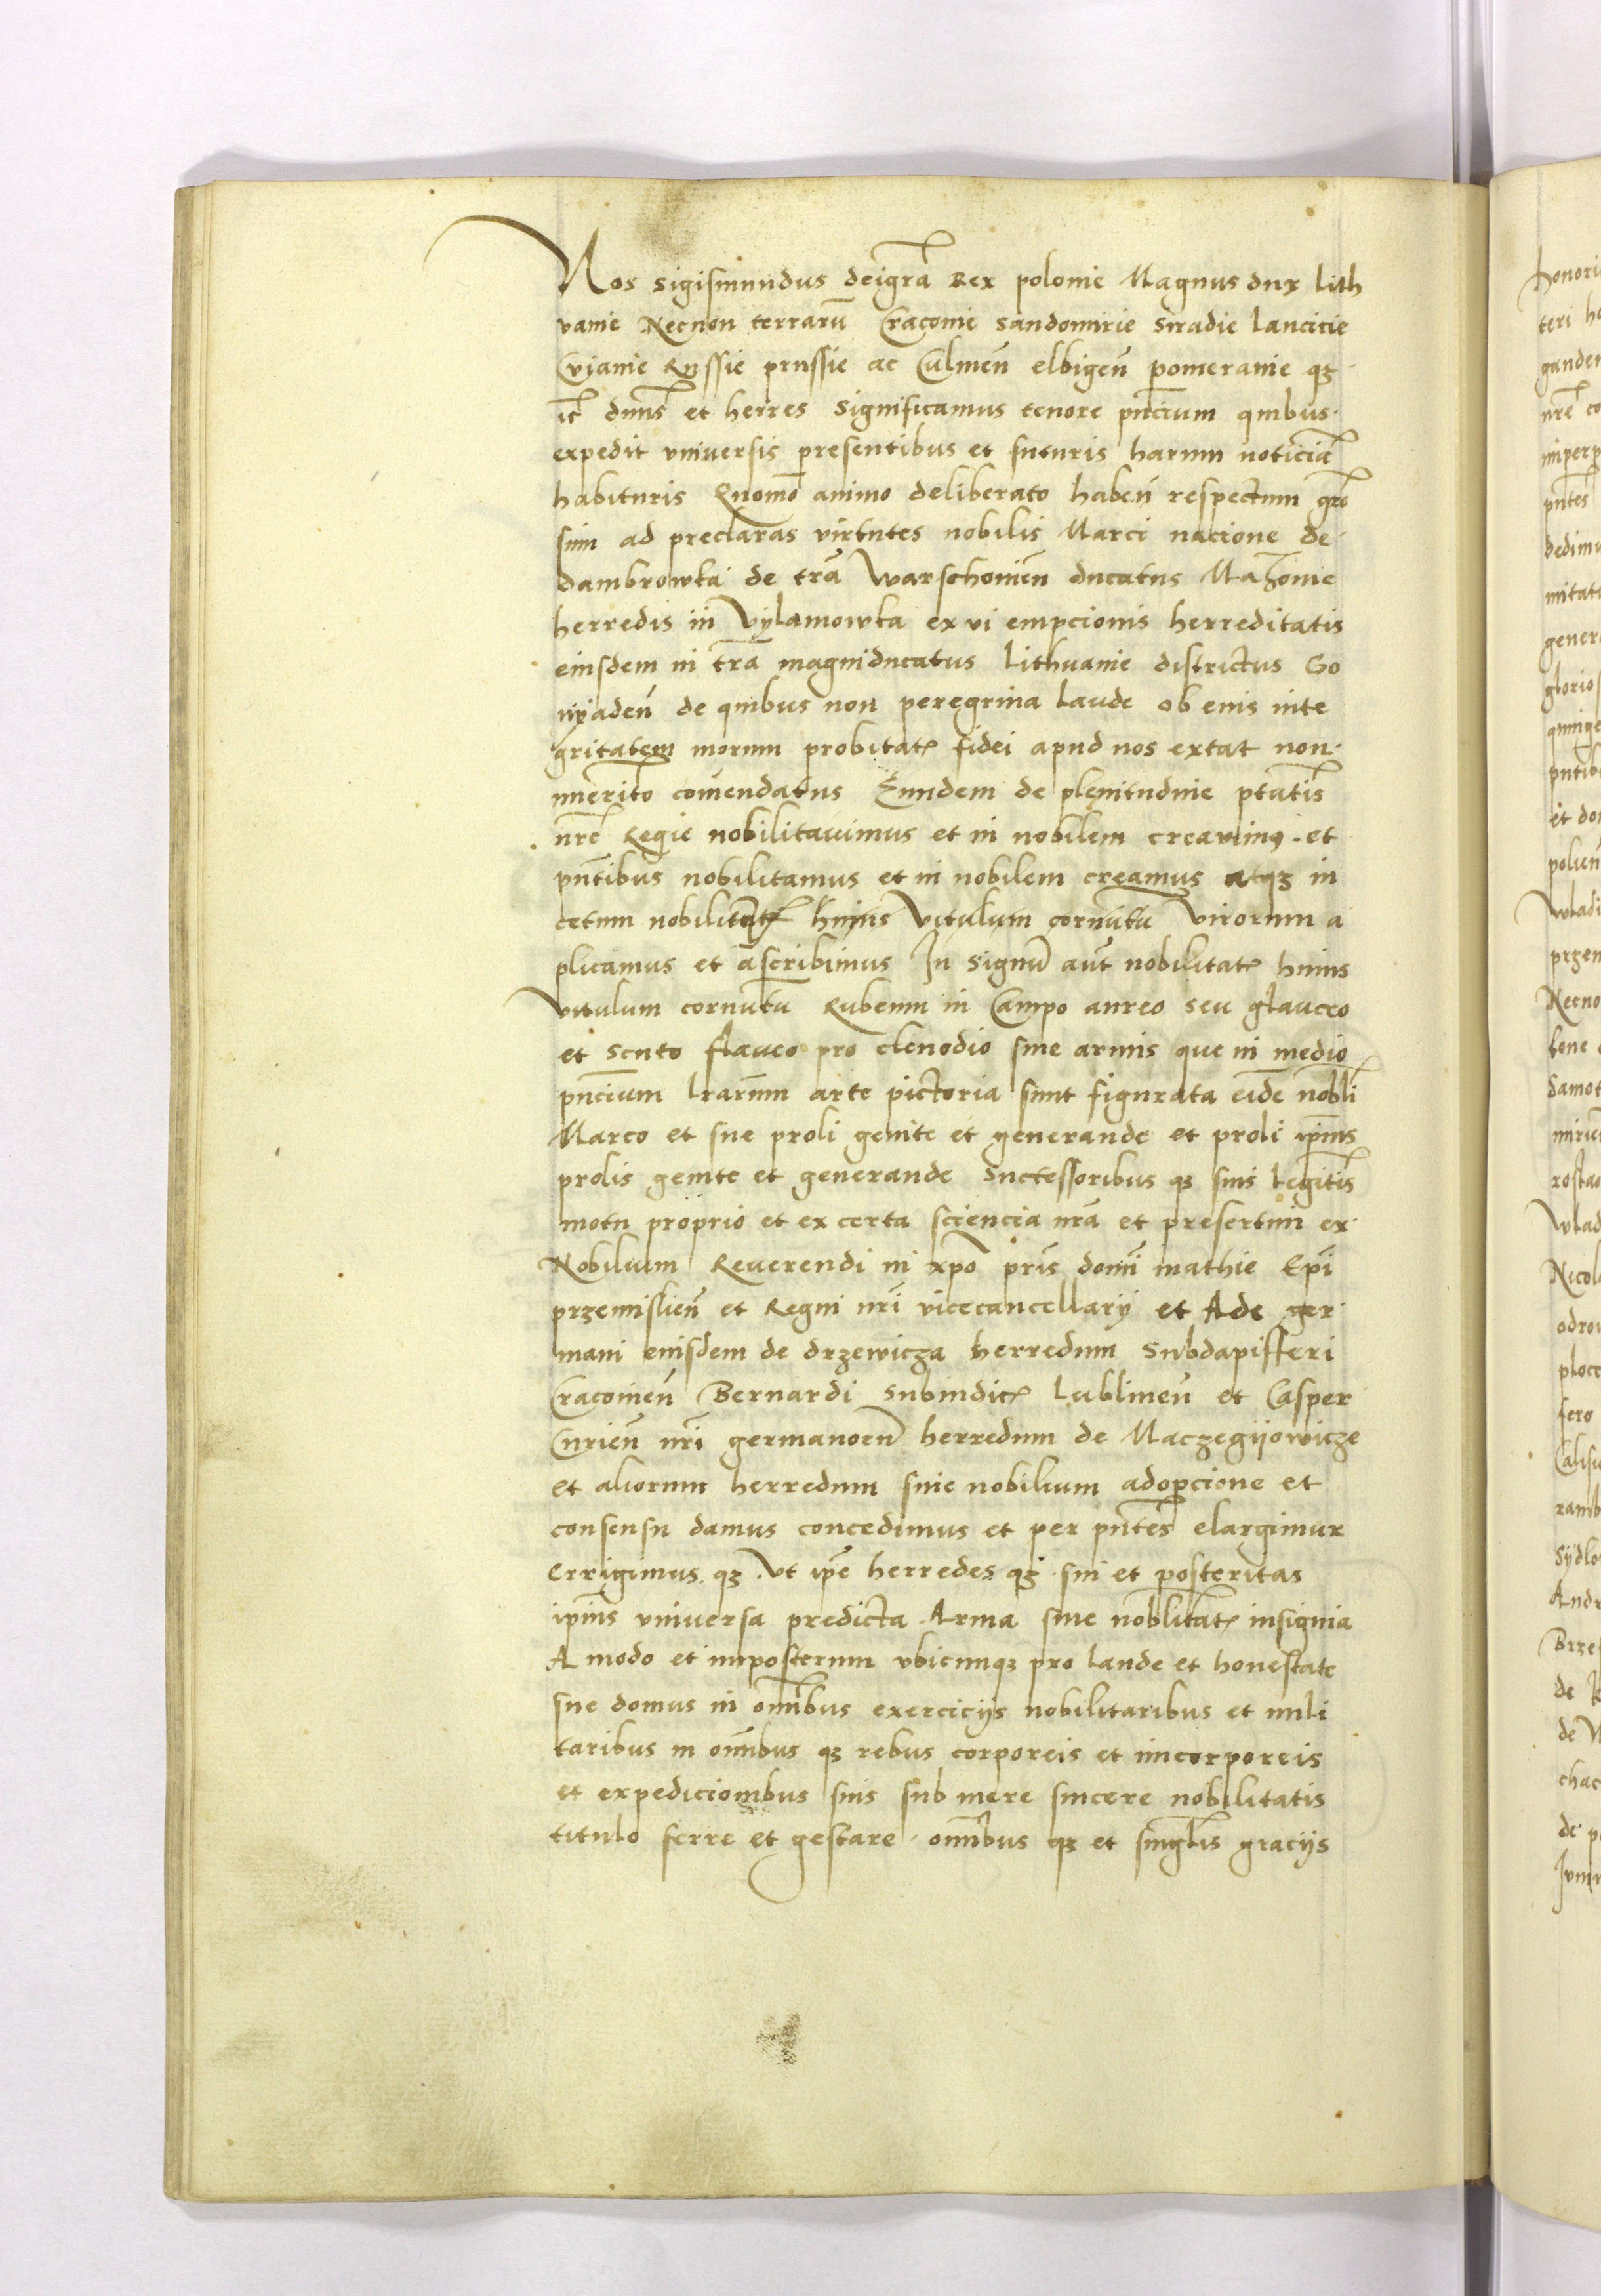 Nos Sigismundus deigrã Rex polonie Magnus dux Lith
vanie Necnon terrarũ Cracovie Sandomirie Siradie Lancicie
Cviavie Russie prussie ac Culmeñ elbigeñ pomeranie qȝ
et̃ dnns̃ et herres Significamus tenore pñcium quibus
expedit universis presentibus et futuris harum noticiã
habituris Quomõ animo deliberato habeñ respectum
sum ad preclaras virtutes nobilis Marci nacione de
dambrowka de trã Warschovieñ ducatus Mazovie
herredis in Vylamowka ex vi empcionis herreditatis
eiusdem in trã magniducatus Lithuanie districtus Go
nyadeñ de quibus non peregrina laude ob eius inte
gritatem morum probitatꝭ fidei apud nos extat non
imerito comẽndatus Eundem de plenitudine ptãtis
nrẽ Regie nobilitavimus et in nobilem creavimꝯ et
pñtibus nobilitamus et in nobilem creamus atqȝ in
cetum nobilitatꝭ huius Vitulum cornutũ virorum a
plicamus et ascribimus In signũ aut̃ nobilitatꝭ huius
vitulum cornutũ Rubeum in Campo aureo seu glauceo
et scuto flaveo pro clenodio sive armis que in medio
pñcium lrarum̃ arte pictoria sunt figurata eidẽ nobli
Marco et sue proli genite et generande et proli ipĩus
prolis genite et generande Successoribus qȝ suis legitĩs
motu proprio et ex certa sciencia nrã et presertim ex
Nobilium Reverendi in xpõ pris̃ domĩ mathie Epĩ
przemislieñ et Regni nrĩ vicecancellarij et Ade ger
mani eiusdem de drzewicza herredum Subdapifferi
Cracovieñ Bernardi Subiudicꝭ Lublineñ et Casper
Curieñ nrĩ germanorũ herredum de Maczegijowicze
et aliorum herredum sive nobilium adopcione et
consensu damus concedimus et per pñtes elargimur
errigimus qȝ Vt ipẽ herredes qȝ sui et posteritas
ipĩus universa predicta Arma sive noblitatꝭ insignia
A modo et imposterum ubicunqȝ pro laude et honestate
sue domus in omĩbus exercicijs nobilitaribus et mili
taribus in omĩbus qȝ rebus corporeis et incorporeis
et expedicionibus suis sub mere sincere nobilitatis
titulo ferre et gestare omĩbus qȝ et singlĩs gracijs